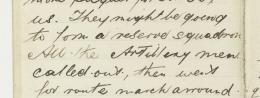 us. They might be going
to form a reserve squadron
All the Artillery men
called out, then went
for route march around